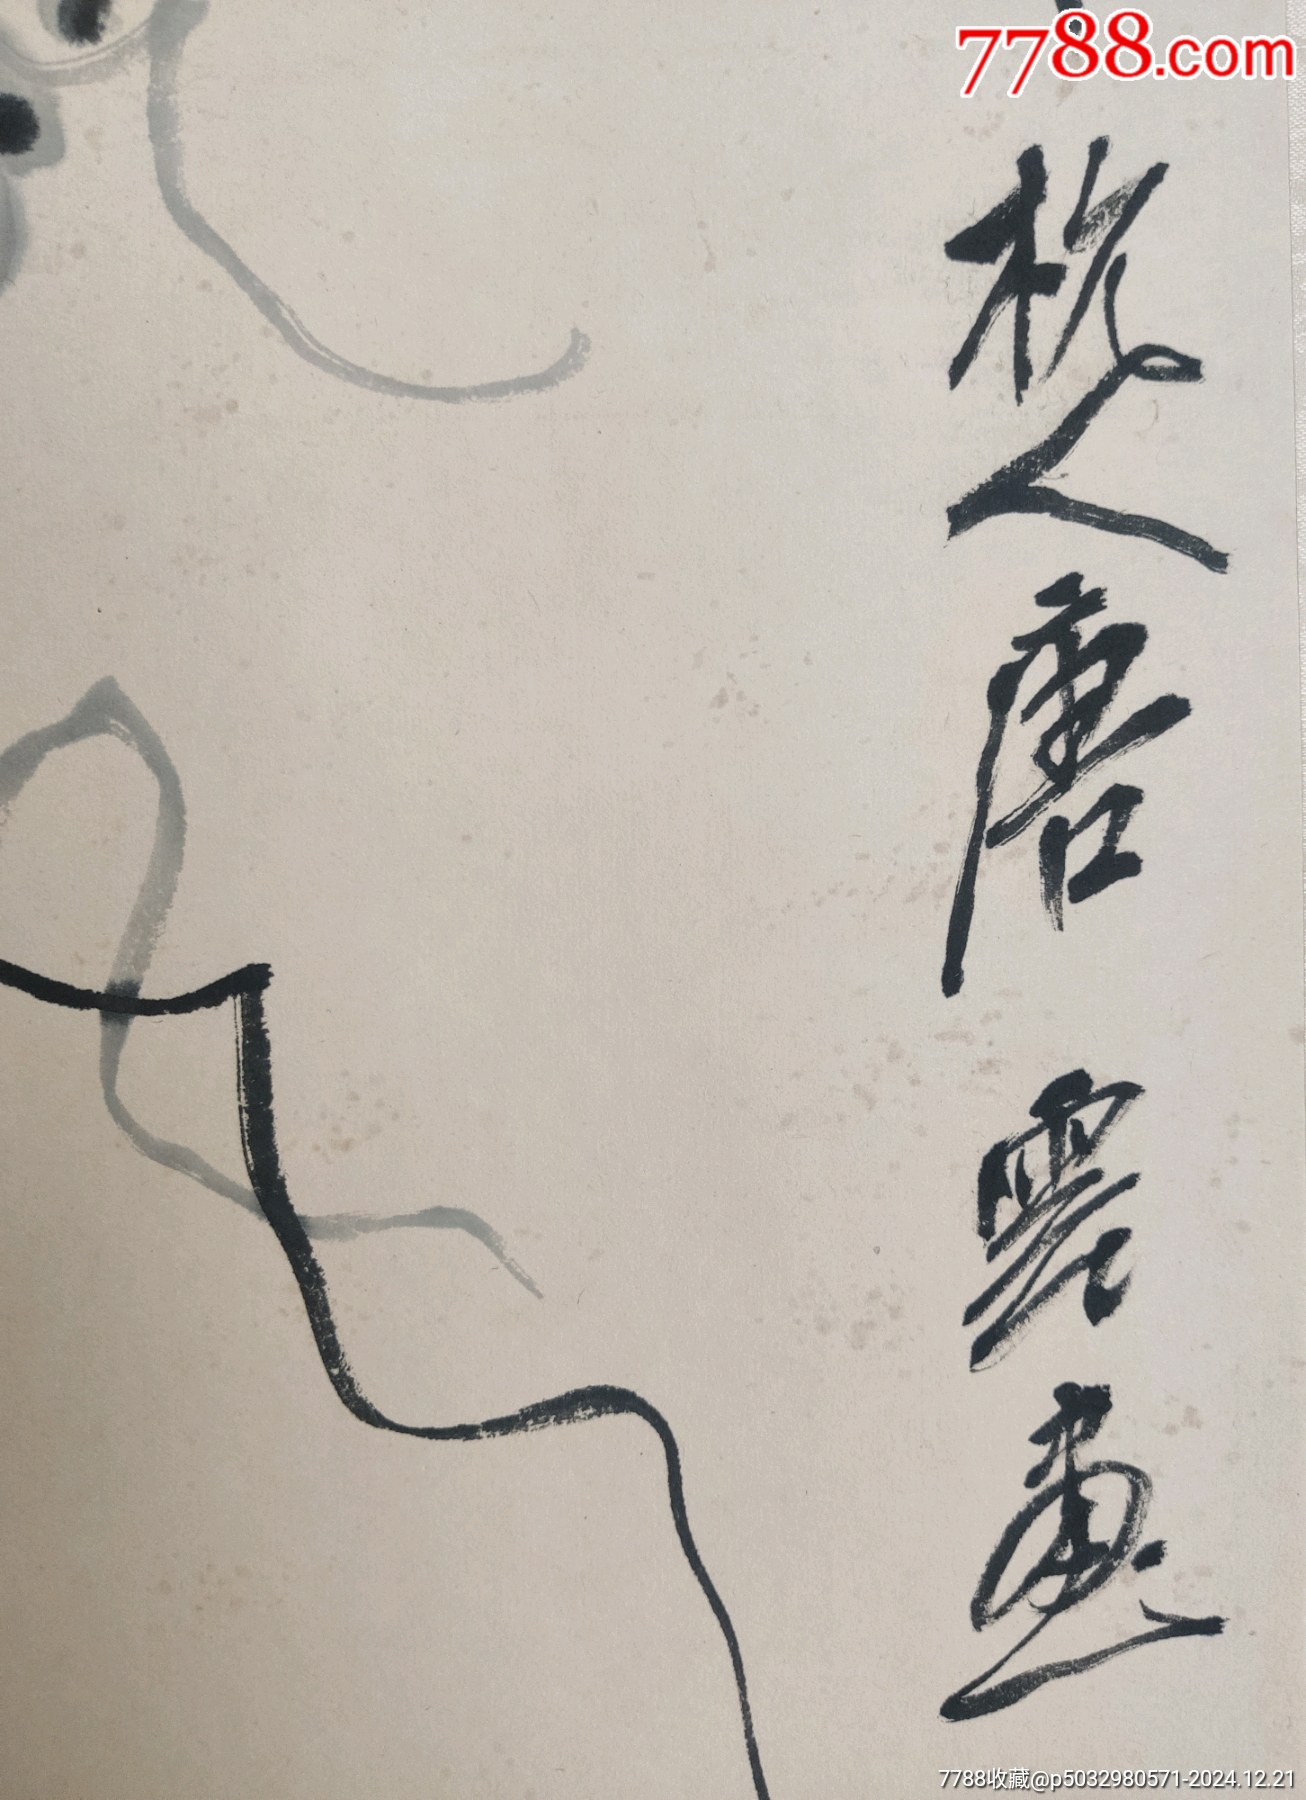 7788.com
杭人唐雲畫
7788收藏@p5032980571-2024.12.21